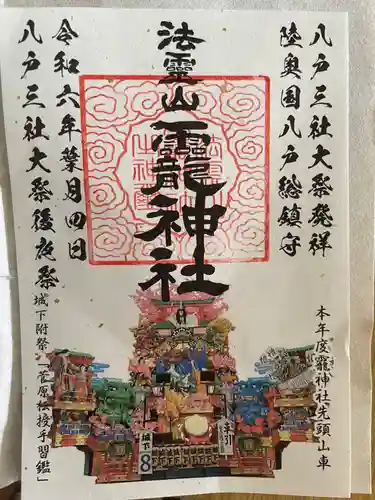 八戸三社大祭発祥
陸奥国八戸総鎮守
法霊山
龗神社
令和六年葉月四日
八戸三社大祭後夜祭
城下附祭「菅原伝授手習鑑」
本年度龗神社先頭山車
城下
8